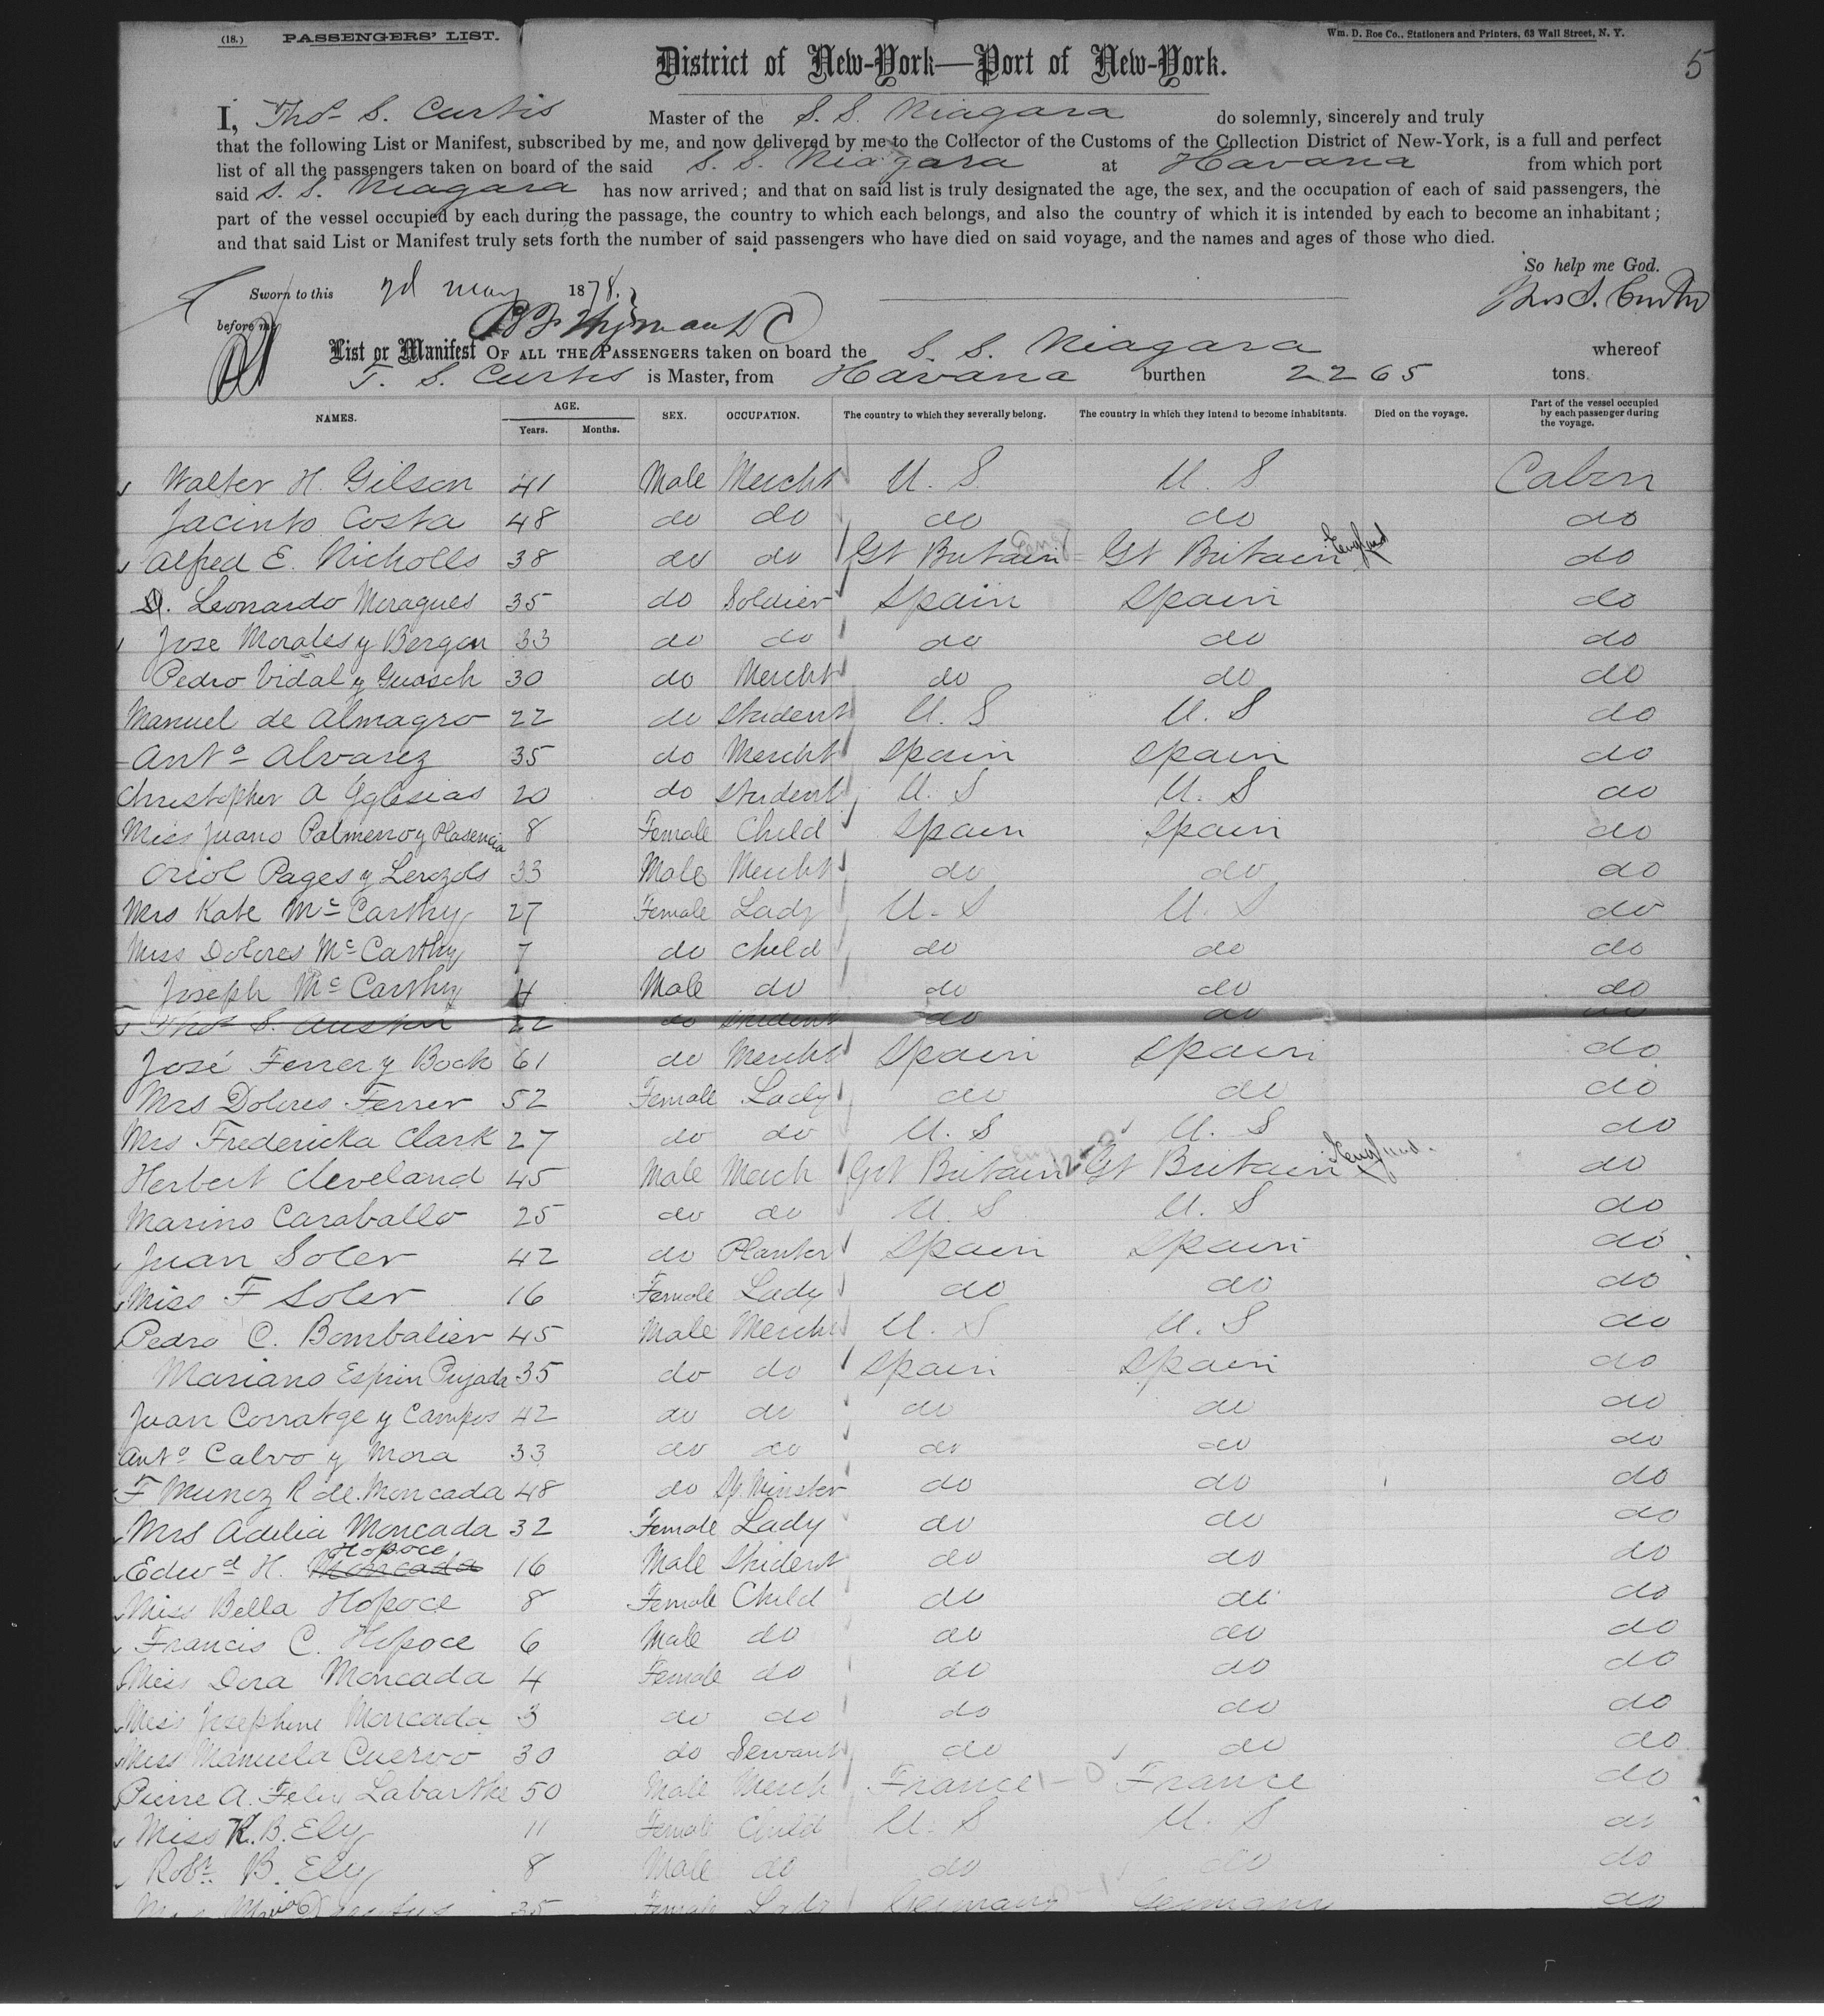 (18.) PASSENGERS' LIST. Wm. D. Roe Co., Stationers and Printers, 63 Wall Street, N. Y.
5
District of New-York—Port of New-York.
I, Thos S. Curtis Master of the S. S. Niagara do solemnly, sincerely and truly
that the following List or Manifest, subscribed by me, and now delivered by me to the Collector of the Customs of the Collection District of New-York, is a full and perfect
list of all the passengers taken on board of the said S. S. Niagara at Havana from which port
said S. S. Niagara has now arrived; and that on said list is truly designated the age, the sex, and the occupation of each of said passengers, the
part of the vessel occupied by each during the passage, the country to which each belongs, and also the country of which it is intended by each to become an inhabitant;
and that said List or Manifest truly sets forth the number of said passengers who have died on said voyage, and the names and ages of those who died.
So help me God.
Sworn to this May 1878. Thos S. Curtis
before me
List or Manifest OF ALL THE PASSENGERS taken on board the S. S. Niagara whereof
T. S. Curtis is Master, from Havana burthen 2265 tons.
NAMES. AGE. Years. Months. SEX. OCCUPATION. The country to which they severally belong. The country in which they intend to become inhabitants. Died on the voyage. Part of the vessel occupied by each passenger during the voyage.
Walter H. Gilson 41 Male Mercht U. S U. S Cabin
Jacinto Costa 48 do do do do do
Alfred E. Nicholls 38 do do Gt Britain Eng Gt Britain England do
Leonardo Moragues 35 do Soldier Spain Spain do
Jose Morales y Bergon 33 do do do do do
Pedro Vidal y Guasch 30 do Mercht do do do
Manuel de Almagro 22 do Student U. S U. S do
Anto Alvarez 35 do Mercht Spain Spain do
Christopher A Yglesias 20 do Student U. S U. S do
Miss Juana Palmero y Plasencia 8 Female Child Spain Spain do
Oriol Pages y 33 Male Mercht do do do
Mrs Kate McCarthy 27 Female Lady U. S U. S do
Miss Dolores McCarthy 7 do child do do do
Joseph McCarthy 4 Male do do do do
Thos S. Austin 22 do Student do do do
José Ferrer y Bock 61 do Mercht Spain Spain do
Mrs Dolores Ferrer 52 Female Lady do do do
Mrs Fredericka Clark 27 do do U. S U. S do
Herbert Cleveland 45 Male Merch Gt Britain Eng Gt Britain England. do
Marino Caraballo 25 do do U. S U. S do
Juan Soler 42 do Planter Spain Spain do
Miss F Soler 16 Female Lady do do do
Pedro C. Bombalier 45 Male Mercht U. S U. S do
Mariano Esprin 35 do do Spain Spain do
Juan Corratge y Campos 42 do do do do do
Anto Calvo y Mora 33 do do do do do
F Munoz R de Moncada 48 do Sp. Minster do do do
Mrs Adelia Moncada 32 Female Lady do do do
Edwd H. Moncada Hopoce 16 Male Student do do do
Miss Bella Hopoce 8 Female Child do do do
Francis C. Hopoce 6 Male do do do do
Miss Dora Moncada 4 Female do do do do
Miss Josephine Moncada 3 do do do do do
Miss Manuela Cuervo 30 do Servant do do do
Pierre A. Felix Labarthe 50 Male Merch France France do
Miss K. B. Ely 11 Female Child U. S U. S do
Robt. B. Ely 8 Male do do do do
35 Female Lady Germany Germany do